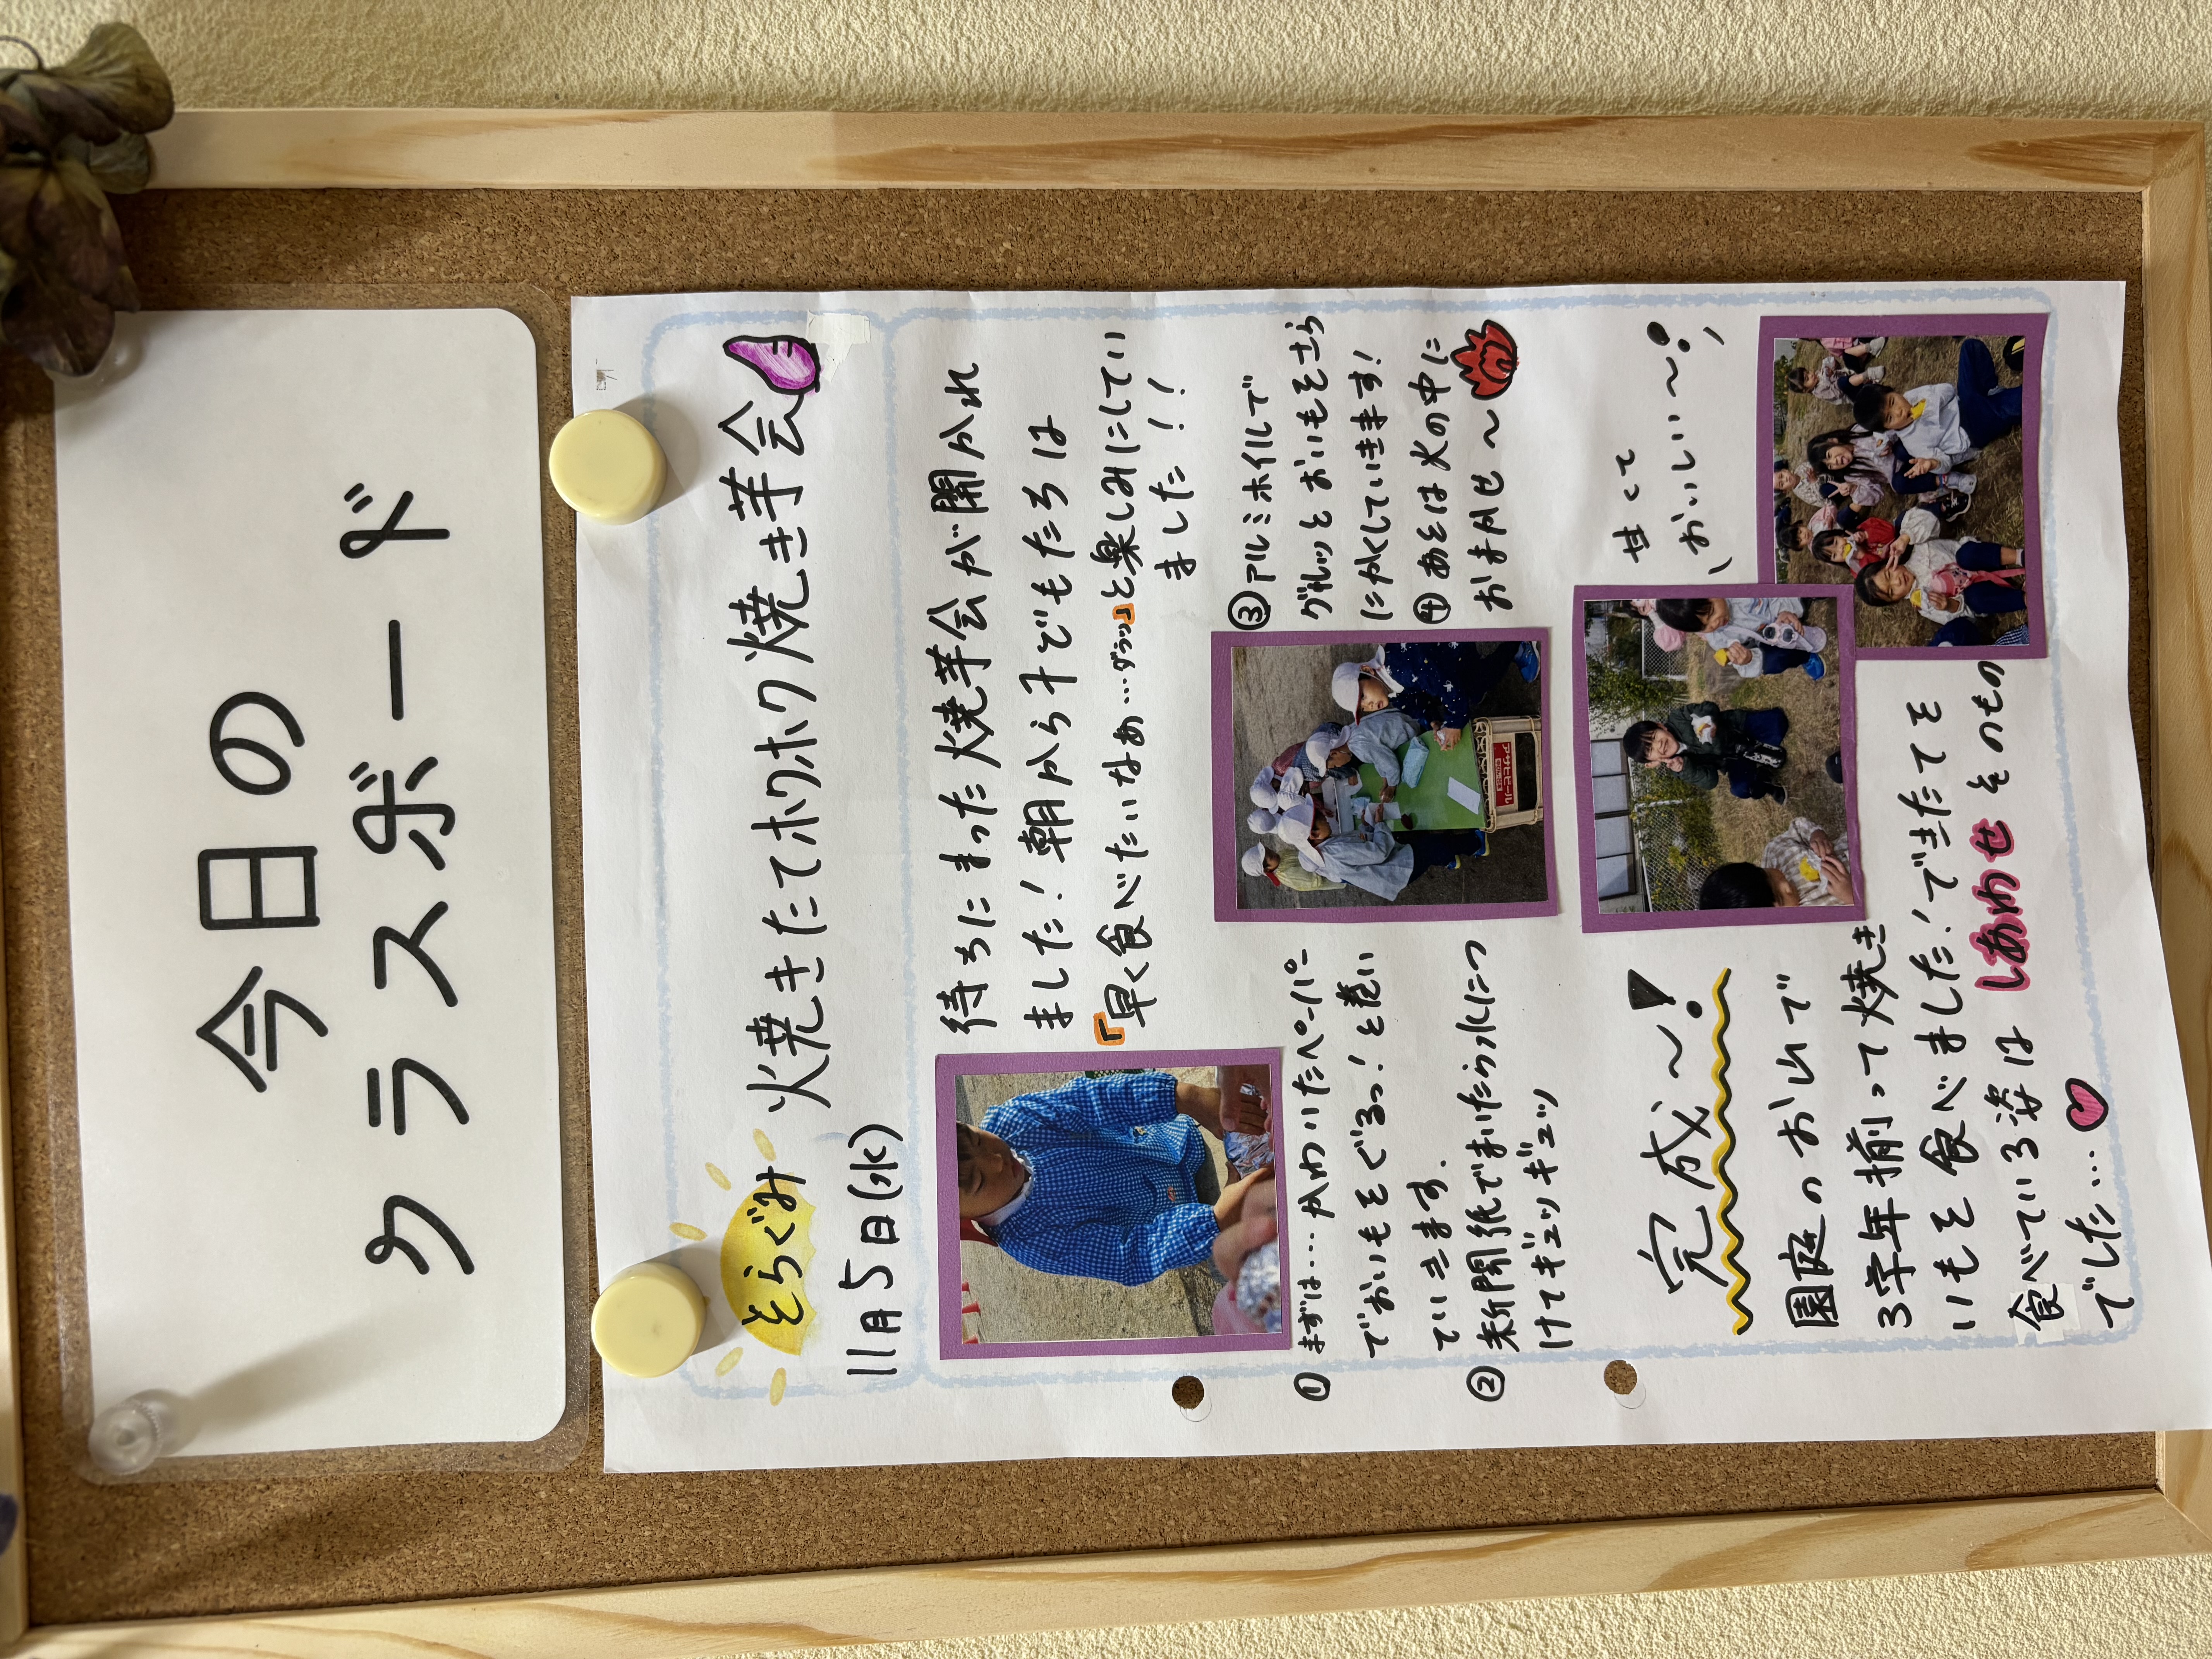 今日の
クラスボード
そらぐみ 焼きたてホクホク焼き芋会
11月5日(水)
待ちにまった焼芋会が開かれ
ました！朝から子どもたちは
「早く食べたいなぁ…グゥゥ」と楽しみにしてい
ました！！
①まずは…かわいたペーパー
でおいもをぐるっ！と巻い
ていきます。
②新聞紙でまいたら水につ
けてギュッギュッ
③アルミホイルで
グルッとおいもをさら
にかくしていきます！
④あとは火の中に
おまかせ〜
アサヒビール
完成〜！
甘くて
おいしい〜！
園庭のお山で
3学年揃って焼き
いもを食べました！できたてを
食べている姿は しあわせ そのもの
でした…